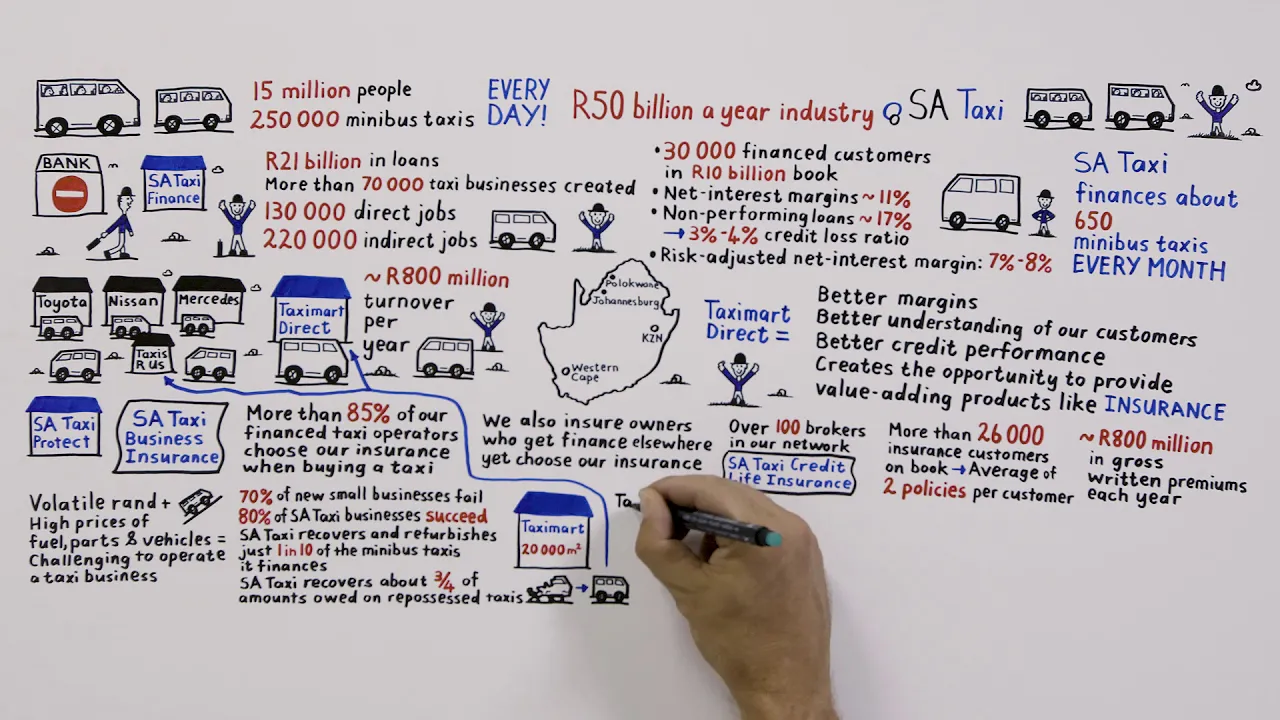 15 million people
250 000 minibus taxis
EVERY
DAY!
R50 billion a year industry
SA Taxi
BANK
SA Taxi
Finance
R21 billion in loans
More than 70 000 taxi businesses created
130 000 direct jobs
220 000 indirect jobs
• 30 000 financed customers
in R10 billion book
• Net-interest margins ~ 11%
• Non-performing loans ~ 17%
→ 3%-4% credit loss ratio
• Risk-adjusted net-interest margin: 7%-8%
SA Taxi
finances about
650
minibus taxis
EVERY MONTH
Toyota
Nissan
Mercedes
Taxis
R Us
Taximart
Direct
~ R800 million
turnover
per
year
Polokwane
Johannesburg
KZN
Western
Cape
Taximart
Direct =
Better margins
Better understanding of our customers
Better credit performance
Creates the opportunity to provide
value-adding products like INSURANCE
SA Taxi
Protect
SA Taxi
Business
Insurance
More than 85% of our
financed taxi operators
choose our insurance
when buying a taxi
We also insure owners
who get finance elsewhere
yet choose our insurance
Over 100 brokers
in our network
SA Taxi Credit
Life Insurance
More than 26 000
insurance customers
on book → Average of
2 policies per customer
~ R800 million
in gross
written premiums
each year
Volatile rand +
High prices of
fuel, parts & vehicles =
Challenging to operate
a taxi business
70% of new small businesses fail
80% of SA Taxi businesses succeed
SA Taxi recovers and refurbishes
just 1 in 10 of the minibus taxis
it finances
SA Taxi recovers about 3/4 of
amounts owed on repossessed taxis
Taximart
20 000 m²
Ta